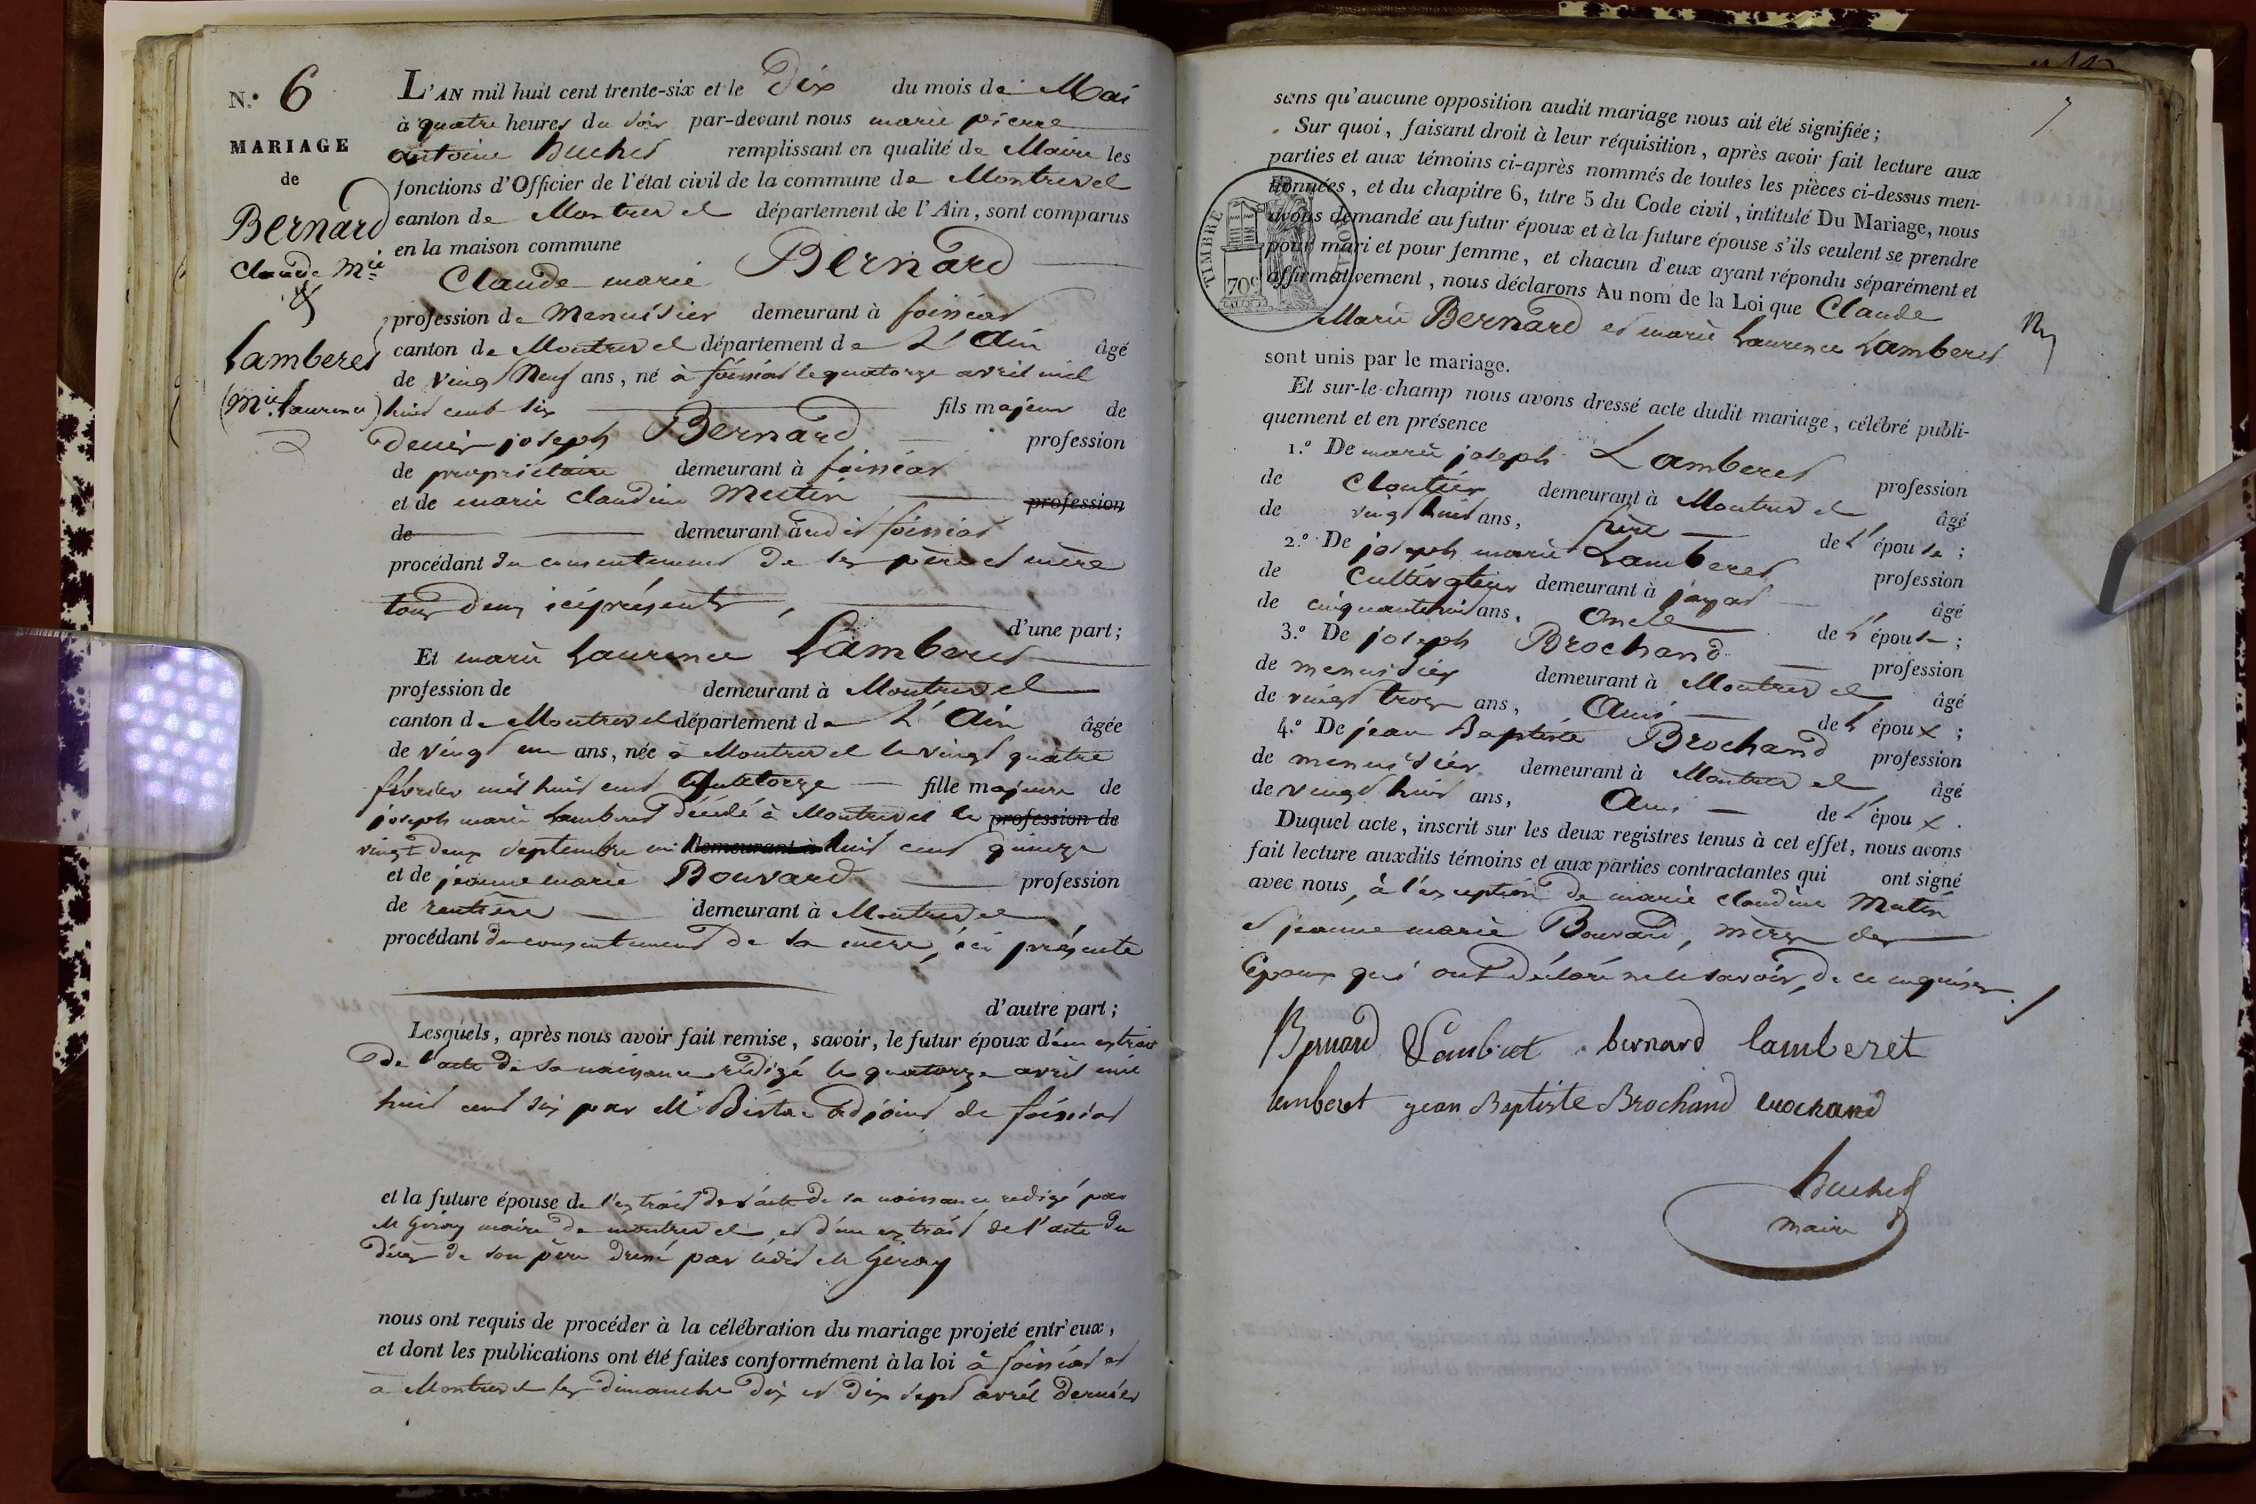 N.º 6
MARIAGE
de
Bernard
Claude Mie
&
Lamberet
(Mie Laurence)
L'AN mil huit cent trente-six et le Dix du mois de Mai
à quatre heures du soir par-devant nous marie pierre
antoine Buchet remplissant en qualité de Maire les
fonctions d'Officier de l'état civil de la commune de Montrevel
canton de Montrevel département de l'Ain, sont comparus
en la maison commune
Claude marie Bernard
profession de Menuisier demeurant à foissiat
canton de Montrevel département de L'Ain âgé
de vingt Neuf ans, né à foissiat le quatorze avril mil
huit cent six fils majeur de
Denis joseph Bernard profession
de propriétaire demeurant à foissiat
et de marie Claudine Mutin profession
de demeurant audit foissiat
procédant du consentement de ses père et mère
tous deux ici présents,
d'une part;
Et marie Laurence Lamberet
profession de demeurant à Montrevel
canton de Montrevel département de L'Ain âgée
de vingt un ans, née à Montrevel le vingt quatre
février mil huit cent Quatorze fille majeure de
joseph marie Lamberet décédé à Montrevel le profession de
vingt deux septembre mil demeurant à huit cent quinze
et de jeanne marie Bouvard profession
de rentière demeurant à Montrevel
procédant du consentement de sa mère, ici présente
d'autre part;
Lesquels, après nous avoir fait remise, savoir, le futur époux d'un extrait
de l'acte de sa naissance rédigé le quatorze avril mil
huit cent six par Mr adjoint de foissiat
et la future épouse de l'extrait de l'acte de sa naissance redigé par
Mr Giroy maire de montrevel et d'un extrait de l'acte du
décès de son père dressé par ledit Mr Giroy
nous ont requis de procéder à la célébration du mariage projeté entr'eux,
et dont les publications ont été faites conformément à la loi à foissiat et
à Montrevel les dimanche dix et dix sept avril dernier
sans qu'aucune opposition audit mariage nous ait été signifiée;
Sur quoi, faisant droit à leur réquisition, après avoir fait lecture aux
parties et aux témoins ci-après nommés de toutes les pièces ci-dessus men-
tionnées, et du chapitre 6, titre 5 du Code civil, intitulé Du Mariage, nous
avons demandé au futur époux et à la future épouse s'ils veulent se prendre
pour mari et pour femme, et chacun d'eux ayant répondu séparément et
affirmativement, nous déclarons Au nom de la Loi que Claude
Marie Bernard et marie Laurence Lamberet
sont unis par le mariage.
TIMBRE ROYAL
70c
Et sur-le-champ nous avons dressé acte dudit mariage, célébré publi-
quement et en présence
1.º De marie joseph Lamberet profession
de Cloutier demeurant à Montrevel âgé
de vingt huit ans, frère de l'épouse;
2.º De joseph marie Lamberet profession
de Cultivateur demeurant à jayat âgé
de cinquante huit ans, Oncle de l'épouse;
3.º De joseph Brochand profession
de menuisier demeurant à Montrevel âgé
de vingt trois ans, Ami de l'époux;
4.º De jean Baptiste Brochand profession
de menuisier demeurant à Montrevel âgé
de vingt huit ans, Ami de l'époux.
Duquel acte, inscrit sur les deux registres tenus à cet effet, nous avons
fait lecture auxdits témoins et aux parties contractantes qui ont signé
avec nous, à l'exception de marie Claudine Mutin
et jeanne marie Bouvard, mères des
Epoux qui ont déclaré ne le savoir, de ce enquises.
Bernard Lambert bernard lamberet
lamberet jean Baptiste Brochand brochand
Buchet
maire